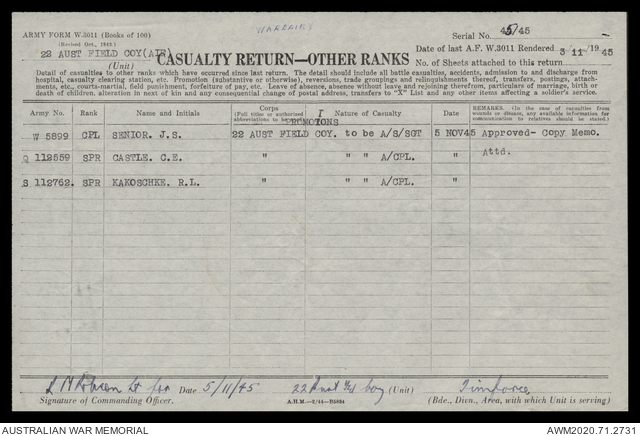 ARMY FORM W.3011 (Books of 100)
(Revised Oct., 1942.)
Serial No. 45/45
22 AUST FIELD COY(AIF)
(Unit)
CASUALTY RETURN—OTHER RANKS
Date of last A.F. W.3011 Rendered 3/11/1945
No. of Sheets attached to this return
Detail of casualties to other ranks which have occurred since last return. The detail should include all battle casualties, accidents, admission to and discharge from
hospital, casualty clearing station, etc. Promotion (substantive or otherwise), reversions, trade groupings and relinquishments thereof, transfers, postings, attach-
ments, etc., courts-martial, field punishment, forfeiture of pay, etc. Leave of absence, absence without leave and rejoining therefrom, particulars of marriage, birth or
death of children, alteration in next of kin and any consequential change of postal address, transfers to "X" List and any other items affecting a soldier's service.
Army No. Rank NAME and Initials Corps (Full titles or authorised abbreviations to be used) Nature of Casualty Date REMARKS. (In the case of casualties from wounds or disease, any available information for communication to relatives should be stated.)
I
PROMOTIONS
W 5899 CPL SENIOR. J.S. 22 AUST FIELD COY. to be A/S/SGT 5 NOV45 Approved- Copy Memo.
Attd.
Q 112559 SPR CASTLE. C.E. " " " A/CPL. "
S 112762. SPR KAKOSCHKE. R.L. " " " A/CPL. "
Lt for Date 5/11/45 22 Aust Fd Coy (Unit) Timforce
Signature of Commanding Officer. A.H.M.—2/44—B5834 (Bde., Divn., Area, with which Unit is serving)
AUSTRALIAN WAR MEMORIAL AWM2020.71.2731